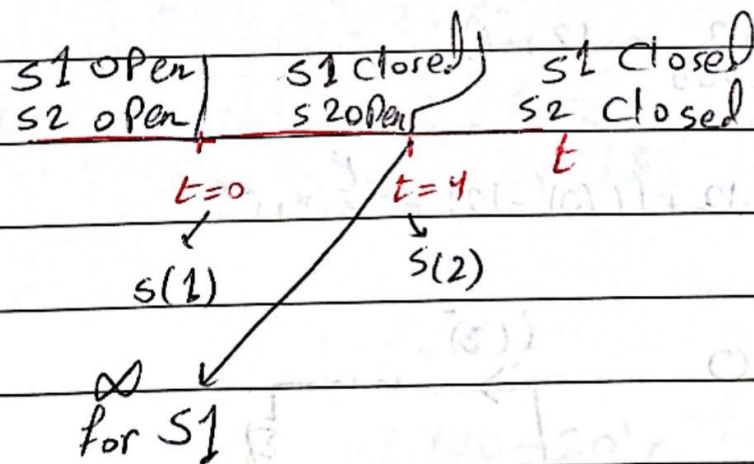 S1 open S1 Closed S1 Closed
S2 open S2 open S2 Closed
t=0 t=4 t
S(1) S(2)
∞
for S1